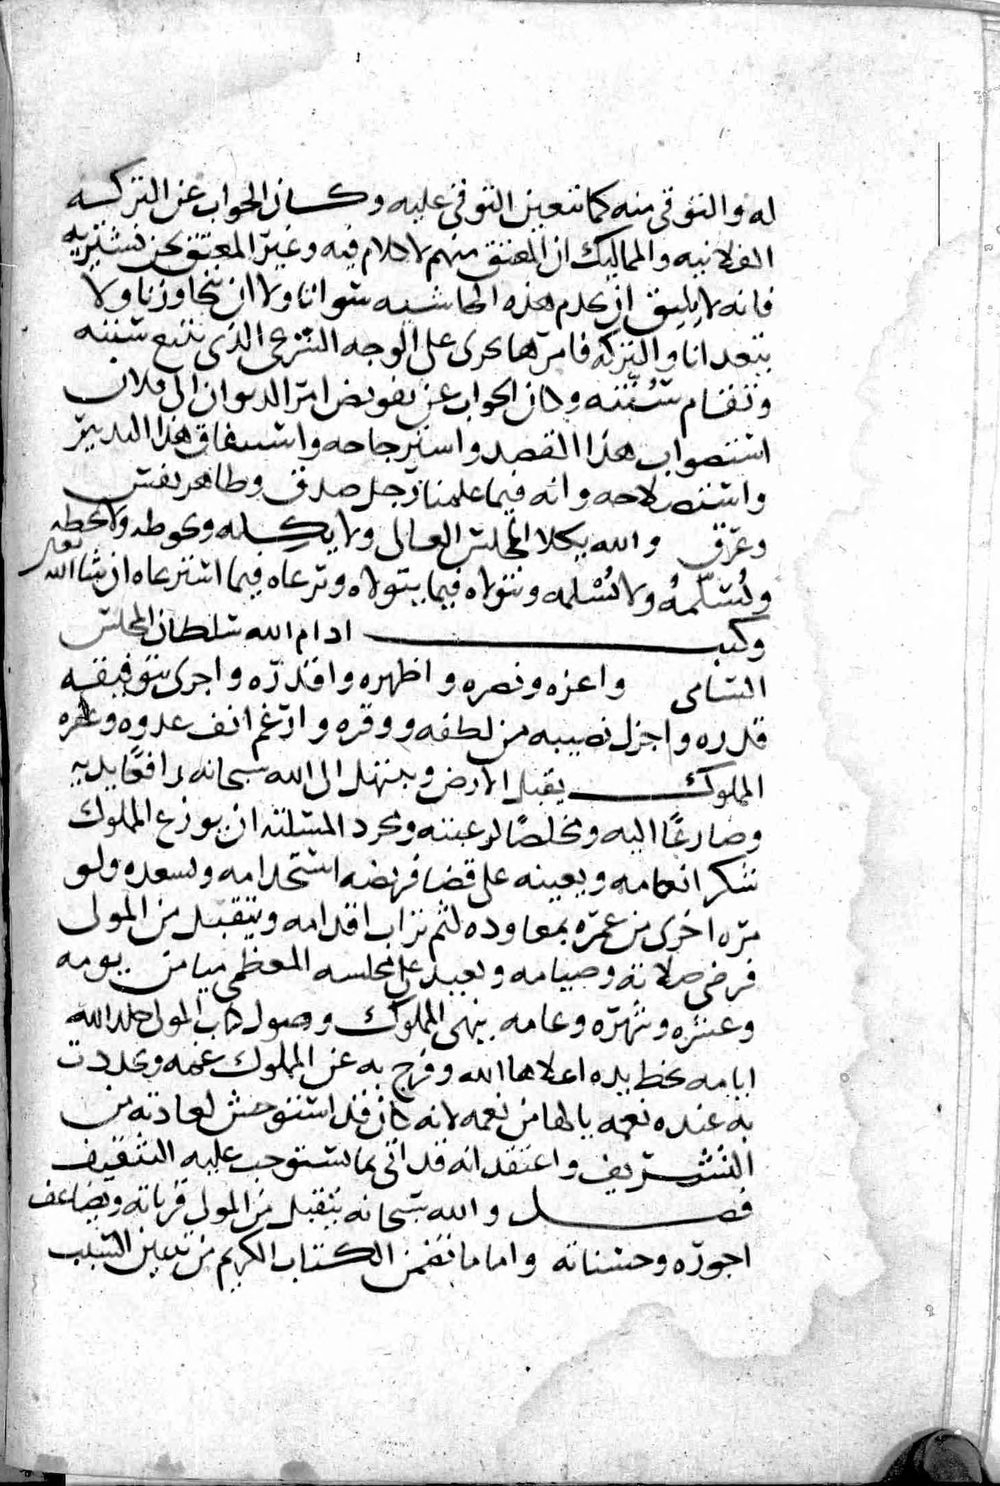 له والتوقي منه كما تتعين التوقي عليه وكان الجواب عن التركه
الفلانيه والمماليك ان المعتق منهم لا كلام فيه وغير المعتق نحن نشتريه
فانه لا يليق ان يخدم هذه الحاشيه سوانا ولا ان يتجاوزنا ولا
يتعدانا والتركه فامرها يجرى على الوجه الشرعي الذى نتبع سننه
ونقام سننه وكان الجواب عن تفويض امر الديوان الى فلان
استصواب هذا المقصد واسترجاحه واستيفاق هذا التدبير
واستصلاحه وانه فيما علمنا رجل صدق وطاهر نفس
وعرق والله يكلا المجلس العالى ولا يكله ويحوطه ولا يحطه
ويسلمه ولا يسلمه ويتولاه فيما يتولاه ويرعاه فيما استرعاه ان شا الله تعالى
وكتب ادام الله سلطان المجلس
السامى واعزه ونصره واظهره واقدره واجرى بتوفيقه
قدره واجزل نصيبه من لطفه ووفره وارغم انف عدوه وعفره
المملوك يقبل الارض ويبتهل الى الله سبحانه رافعا يديه
وضارعا اليه ومخلصا لرغبته ومجرد المسئلته ان يوزع المملوك
شكر انعامه ويعينه على قضا فرضه استخدامه ويسعده ولو
مره اخرى من عمره بمعاوده لثم تراب اقدامه ويتقبل من المولى
فرضى صلاته وصيامه ويعيد على مجلسه المعظمى ميامن يومه
وعشره وشهره وعامه ينهى المملوك وصول كتاب المولى خلد الله
ايامه بخط يده اعلاها الله وفرج به عن المملوك غمه وتجددت
به عنده نعمه يا لها من نعمه لانه كان قد استوحش لعادته من
التشريف واعتقد انه قد اتى بما يستوجب عليه التثقيف
فصل والله سبحانه يتقبل من المولى قرباته ويضاعف
اجوره وحسناته واما ما تضمن الكتاب الكريم من تعيين السبب